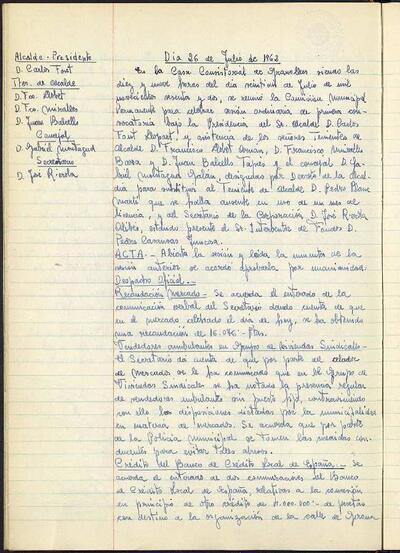 Alcalde-Presidente
D. Carlos Font
Ttes. de Alcalde
D. Fco. Llobet
D. Fco. Miralles
D. Juan Batlle
Concejal
D. Gabriel
Secretario
D. José
Dia 26 de Julio de 1962
En la Casa Consistorial de Granollers siendo las
diez y nueve horas del día veintiseis de Julio de mil
novecientos sesenta y dos, se reunió la Comisión Municipal
Permanente para celebrar sesión ordinaria de primera convo-
catoria bajo la Presidencia del Sr. Alcalde D. Carlos
Font Llopart y asistencia de los señores Tenientes de
Alcalde D. Francisco Llobet D. Francisco Miralles
y D. Juan y el concejal D. Ga-
briel designado por Decreto de la Alcal-
dia para sustituir al Teniente de Alcalde D. Pedro
que se halla ausente en uso de un mes de
licencia, y del Secretario de la Corporación D. José
estando presente el Sr. Interventor de Fondos D.
Pedro
ACTA.- Abierta la sesión y leida la minuta de la
sesión anterior se acordó aprobarla por unanimidad.
Despacho Oficial.-
Recaudación Mercado.- Se acuerda el enterado de la
comunicación verbal del Secretario dando cuenta de que
en el mercado celebrado el dia de hoy, se ha obtenido
una recaudación de 16.046.- Ptas.
Vendedores ambulantes en Grupos de Viviendas Sindicales.-
El Secretario da cuenta de que por parte del celador
de Mercados se le ha comunicado que en el Grupo de
Viviendas Sindicales se ha notado la presencia regular
de vendedores ambulantes sin puesto fijo, contraviniendo
con ello las disposiciones dictadas por la municipalidad
en materia de mercados. Se acuerda que por parte
de la Policia Municipal se tomen las medidas con-
ducentes para evitar tales abusos.
Crédito del Banco de Crédito Local de España.- Se
acuerda el enterado de dos comunicaciones del Banco
de Crédito Local de España, relativas a la concesión
en principio de otro crédito de 4.000.000.- de pesetas
con destino a la organización de la calle de Girona